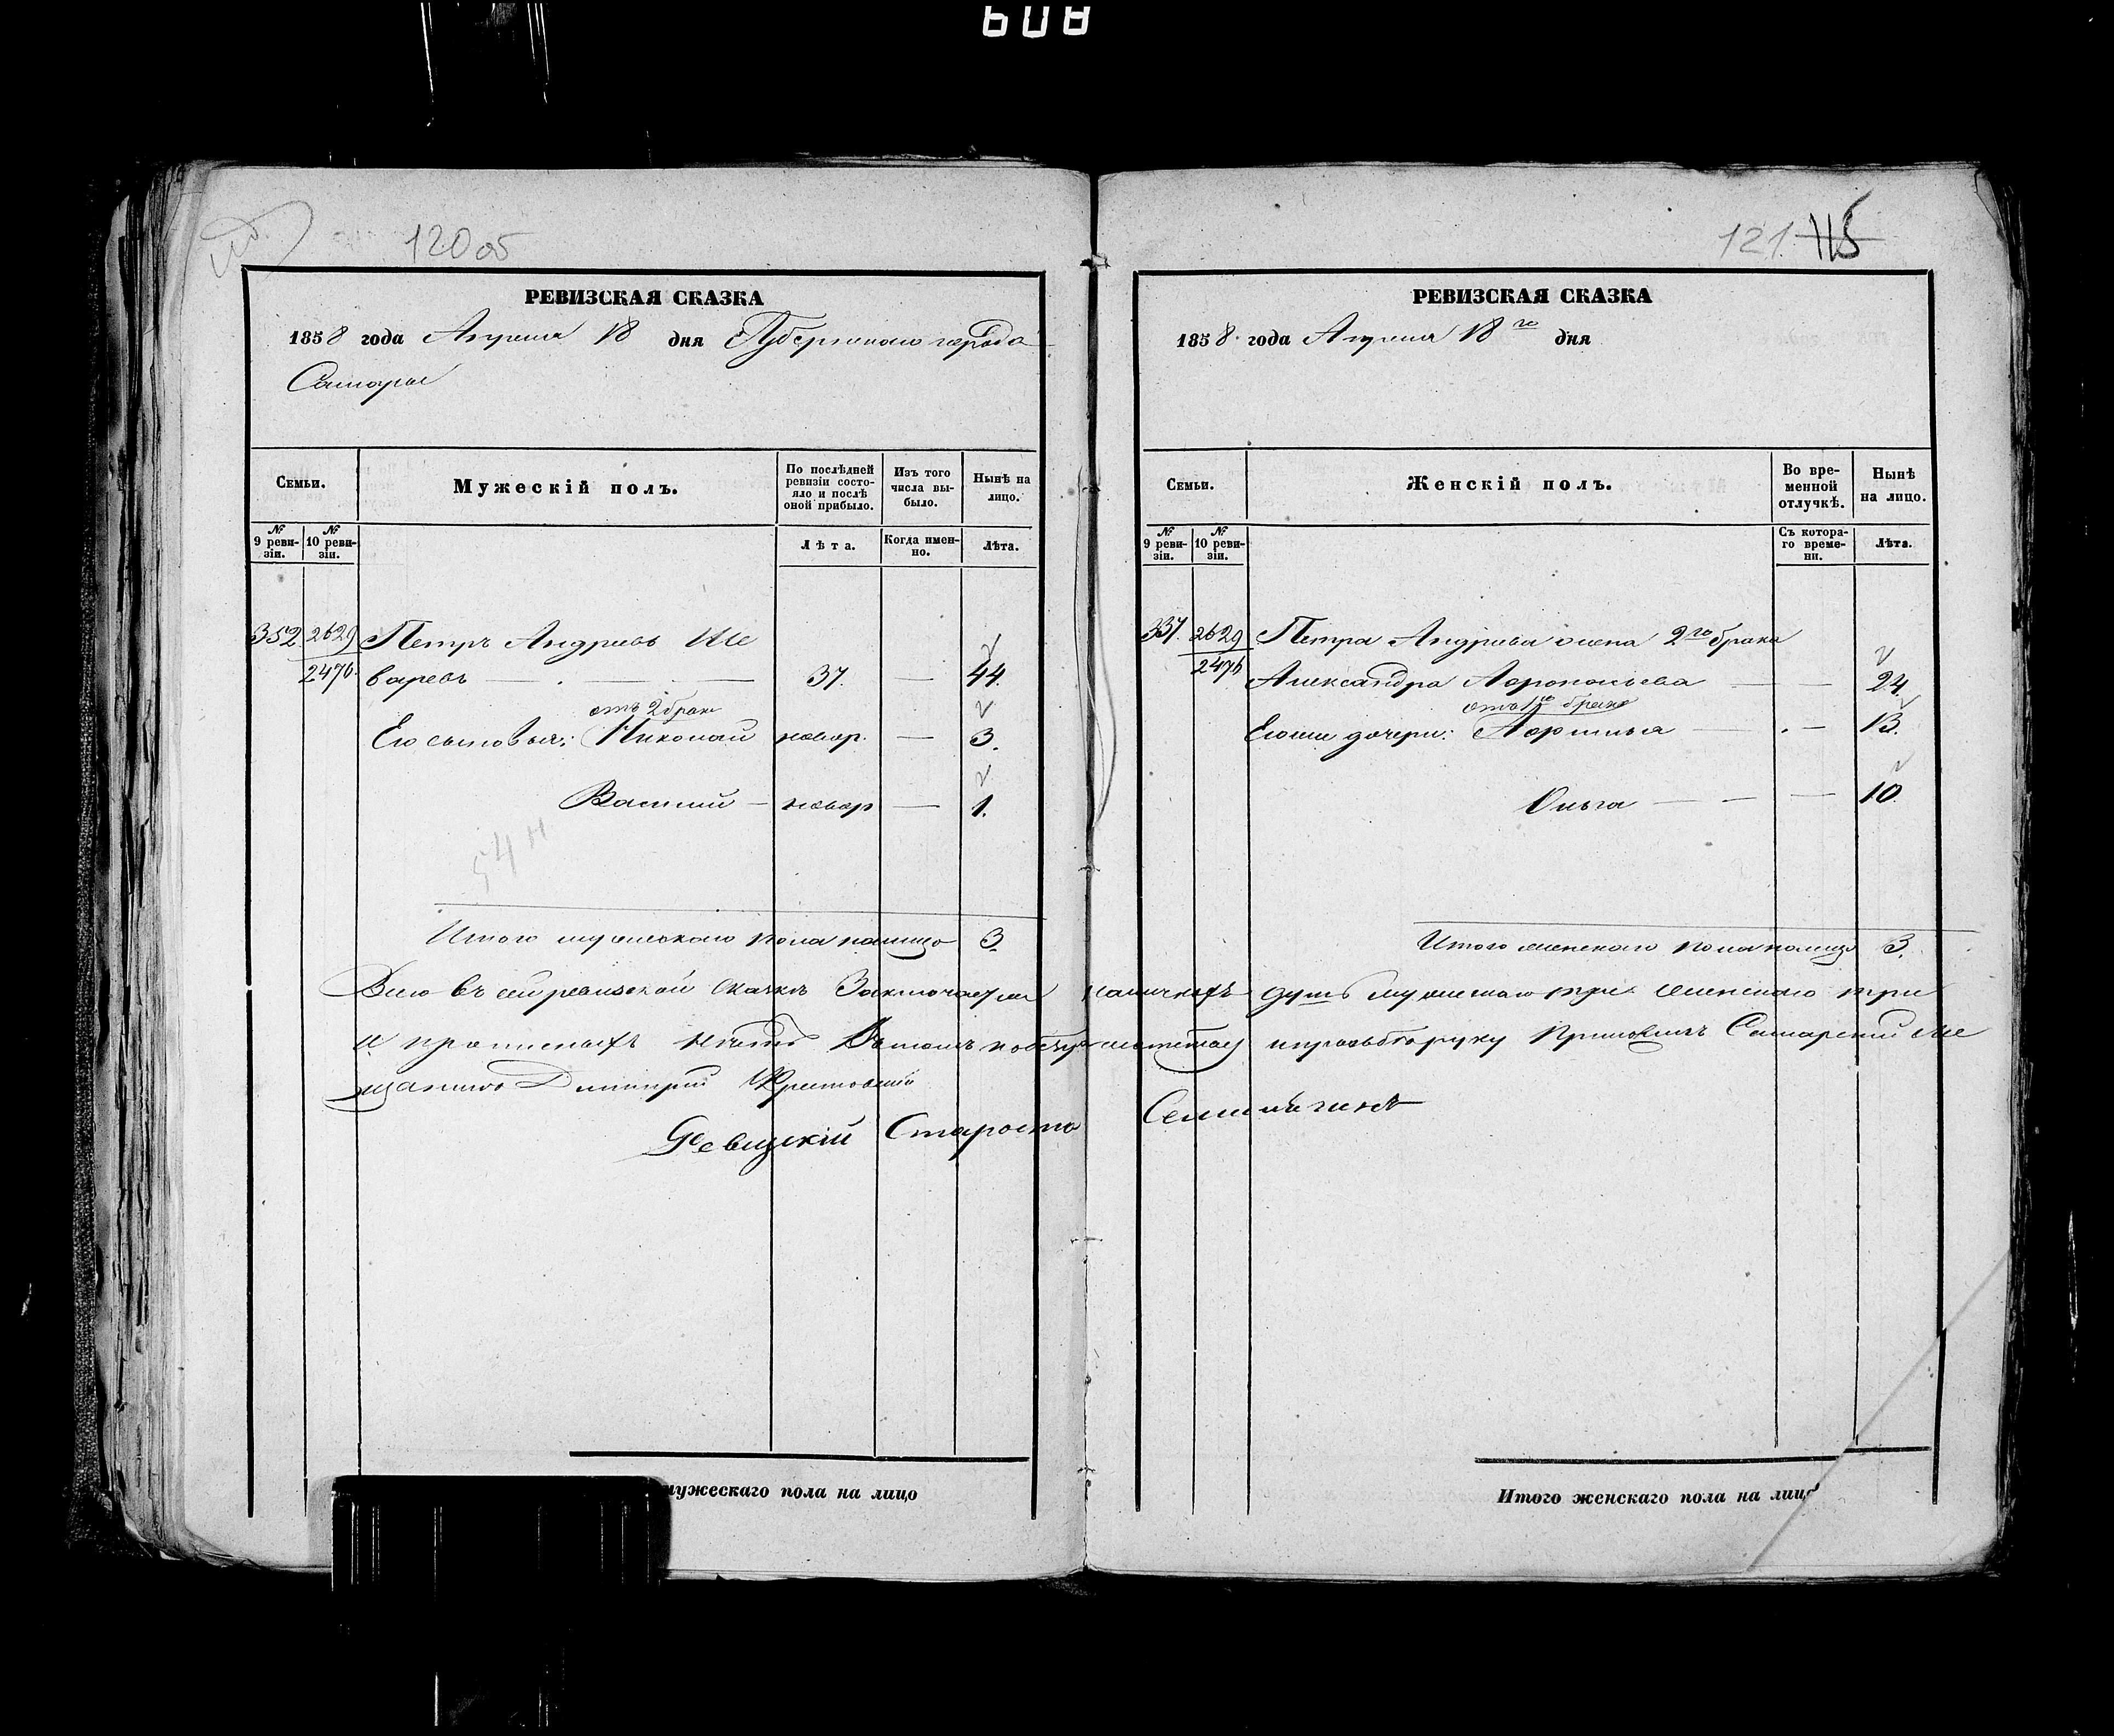 608
120об
РЕВИЗСКАЯ СКАЗКА
1858 года Апреля 18 дня Губернского города
Самары
Семьи.
Мужескій полъ.
По послѣдней ревизіи состояло и послѣ оной прибыло.
Изъ того числа выбыло.
Нынѣ на лицо.
№ 9 ревизіи.
№ 10 ревизіи.
Лѣта.
Когда именно.
Лѣта.
352 2629 Петръ Андреевъ Ше
2476 варевъ 37. — 44.
отъ 2 брака
Его сыновья: Николай новор. — 3.
Василий — новор — 1.
54
Итого мужескаго пола налицо 3.
121. 115
РЕВИЗСКАЯ СКАЗКА
1858 года Апреля 18го дня
Семьи.
Женскій полъ.
Во временной отлучкѣ.
Нынѣ на лицо.
№ 9 ревизіи.
№ 10 ревизіи.
Съ котораго времени.
Лѣта.
337. 2629 Петра Андреева жена 2го брака
2476 Александра 24.
отъ 1го брака
Его же дочери: 13.
Ольга — — — 10.
Итого женскаго пола налицо 3.
Всего въ сей ревизской сказкѣ Заключается наличныхъ душъ мужескаго три женскаго три
и прописныхъ нѣтъ Въ томъ руку приложилъ Самарский ме
щанинъ Дмитрий
Староста
мужескаго пола на лицо
Итого женскаго пола на лицо